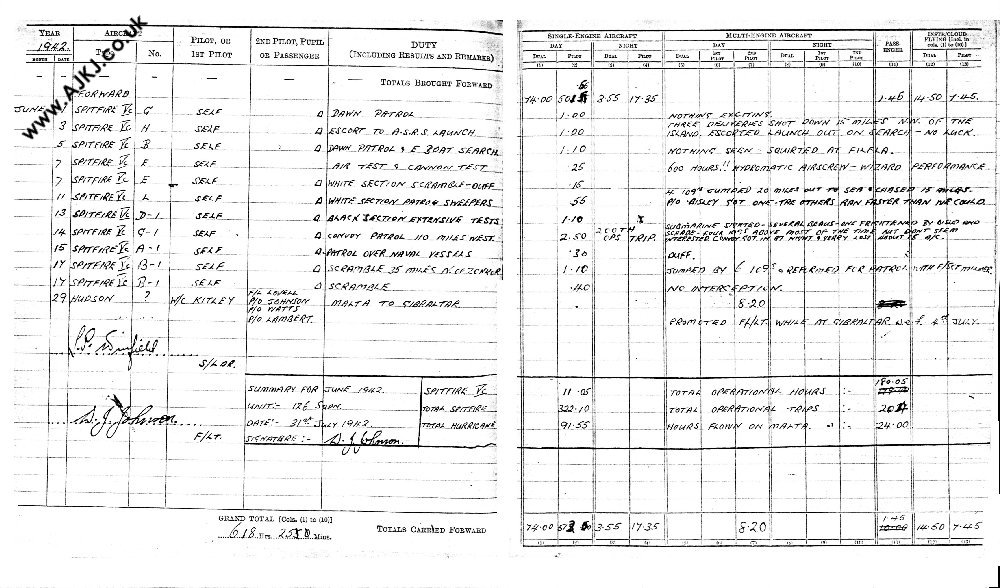 www.AJKJ.co.uk
YEAR AIRCRAFT PILOT, OR 2ND PILOT, PUPIL DUTY
1942. No. 1ST PILOT OR PASSENGER (INCLUDING RESULTS AND REMARKS)
MONTH DATE
— — — — — — TOTALS BROUGHT FORWARD
FORWARD
JUNE SPITFIRE Vc G SELF DAWN PATROL
3 SPITFIRE Vc H SELF ESCORT TO A.S.R.S. LAUNCH.
5 SPITFIRE Vc B SELF DAWN PATROL & E BOAT SEARCH
7 SPITFIRE Vc E SELF AIR TEST & CANNON TEST
7 SPITFIRE Vc E SELF WHITE SECTION SCRAMBLE-DUFF
11 SPITFIRE Vc L SELF WHITE SECTION PATROL SWEEPERS
13 SPITFIRE Vc D-1 SELF BLACK SECTION EXTENSIVE TESTS
14 SPITFIRE Vc G-1 SELF CONVOY PATROL 110 MILES WEST.
15 SPITFIRE Vc A-1 SELF PATROL OVER NAVAL VESSELS
17 SPITFIRE Vc B-1 SELF SCRAMBLE 25 MILES
17 SPITFIRE Vc B-1 SELF SCRAMBLE
29 HUDSON ? W/C KITLEY F/L LOVELL
P/O JOHNSON MALTA TO GIBRALTAR
P/O WATTS
P/O LAMBERT.
S/LDR.
SUMMARY FOR JUNE 1942. SPITFIRE Vc
UNIT:- 126 SQDN. TOTAL SPITFIRE
DATE:- 31st JULY 1942 TOTAL HURRICANE
SIGNATURE:- D. J. Johnson.
D. J. Johnson
F/LT.
GRAND TOTAL [Cols. (1) to (10)]
618 Hrs. Mins.
TOTALS CARRIED FORWARD
SINGLE-ENGINE AIRCRAFT MULTI-ENGINE AIRCRAFT PASS-ENGER INSTR/CLOUD FLYING [Incl. in cols. (1) to (10)]
DAY NIGHT DAY NIGHT
DUAL PILOT DUAL PILOT DUAL 1ST PILOT 2ND PILOT DUAL 1ST PILOT 2ND PILOT DUAL PILOT
(1) (2) (3) (4) (5) (6) (7) (8) (9) (10) (11) (12) (13)
74.00 3.55 17.35 1.45 14.50 7.45.
1.00 NOTHING EXCITING.
1.00 THREE DELIVERIES SHOT DOWN 15 MILES N.W. OF THE
ISLAND. ESCORTED LAUNCH OUT ON SEARCH - NO LUCK.
1.10 NOTHING SEEN - SQUIRTED AT FILFLA.
25 600 HOURS!! HYDROMATIC AIRSCREW - WIZARD PERFORMANCE
15
55 4 109s JUMPED 20 MILES OUT TO SEA & CHASED 15 MILES.
P/O BISLEY GOT ONE - THE OTHERS RAN FASTER THAN WE COULD.
1.10 SUBMARINE SIGHTED - SEVERAL
2.50 200TH OPS TRIP.
.30 DUFF.
1.10 JUMPED BY 6 109s & REFORMED FOR PATROL WITH
.40 NO INTERCEPTION.
8.20
PROMOTED F/LT. WHILE AT GIBRALTAR 4th JULY
11.05 TOTAL OPERATIONAL HOURS :- 180.05
322.10 TOTAL OPERATIONAL TRIPS :-
91.55 HOURS FLOWN ON MALTA. :- 24.00
74.00 3.55 17.35 8.20 1.45 14.50 7.45
(1) (2) (3) (4) (5) (6) (7) (8) (9) (10) (11) (12) (13)